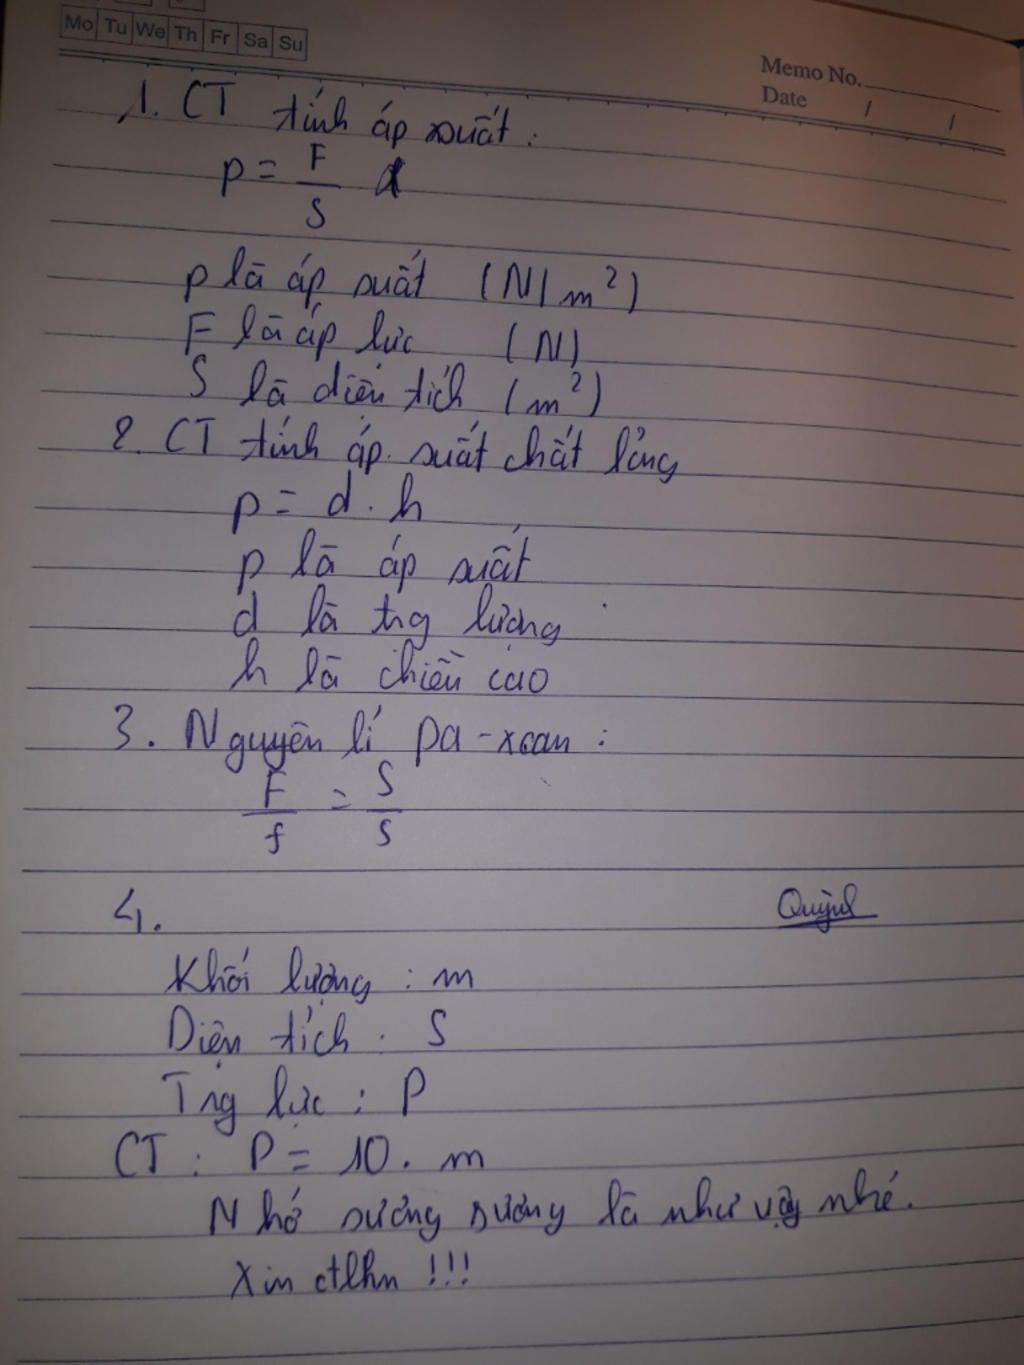 Mo Tu We Th Fr Sa Su
Memo No.
Date / /
1. CT tính áp xuất :
p = F/S
p là áp suất (N/m²)
F là áp lực (N)
S là diện tích (m²)
2. CT tính áp suất chất lỏng
p = d . h
p là áp suất
d là trg lượng
h là chiều cao
3. Nguyên lí pa-xcan :
F/f = S/s
4.
Quỳnh
Khối lượng : m
Diện tích : S
Trg lực : P
CT : P = 10 . m
Nhớ sương sương là như vậy nhé.
Xin ctlhn !!!